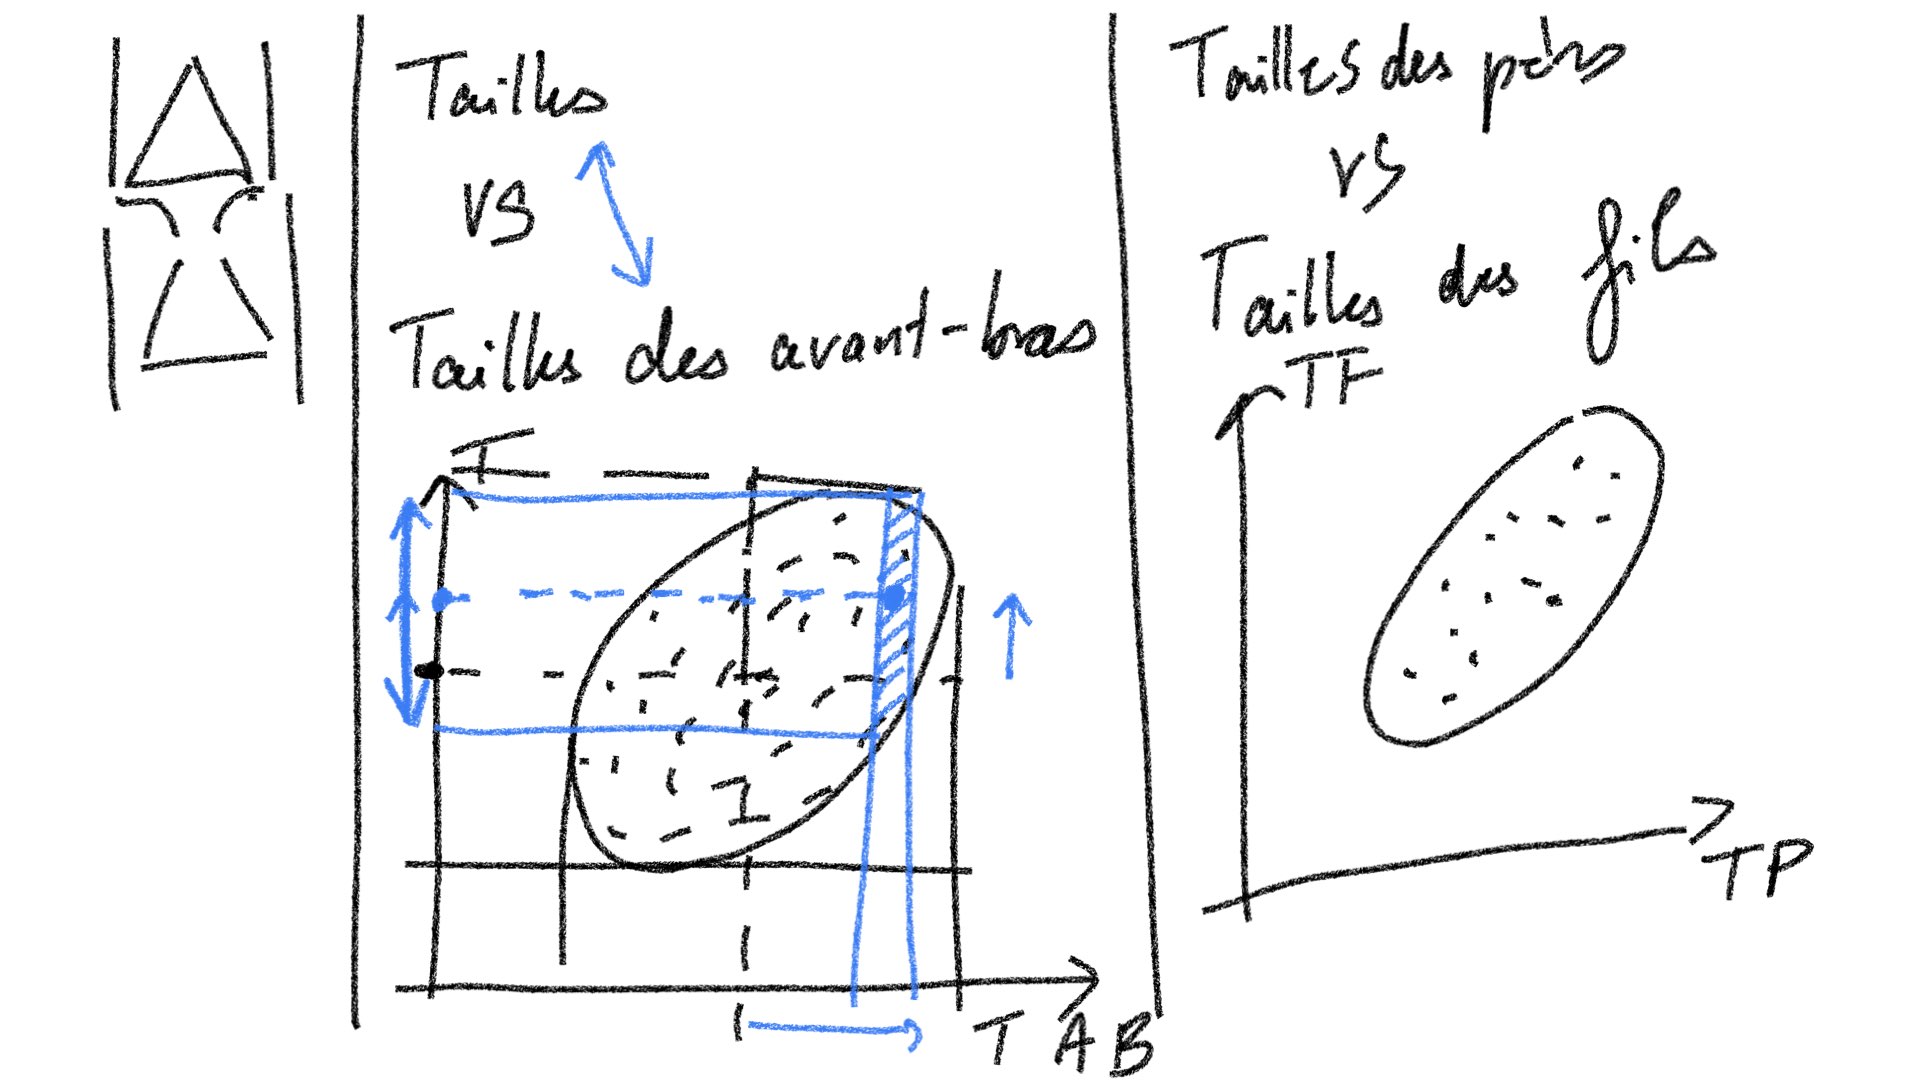 Tailles
vs
Tailles des avant-bras
T
T AB
Tailles des pères
vs
Tailles des fils
TF
TP